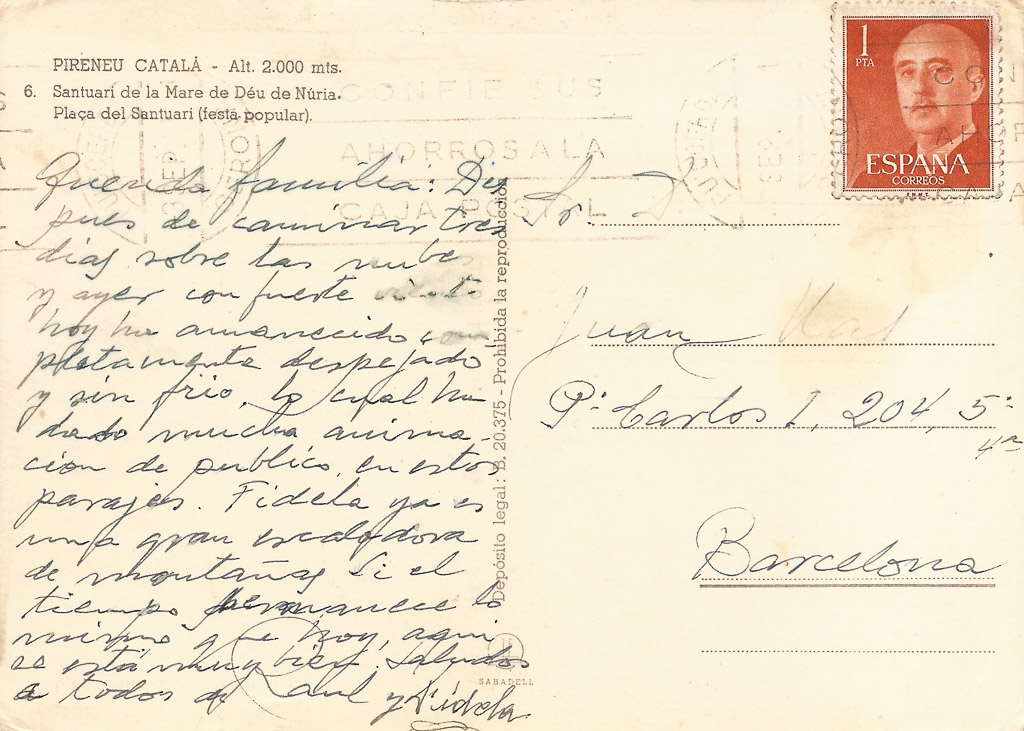 PIRENEU CATALÁ - Alt. 2.000 mts.
6. Santuari de la Mare de Déu de Núria.
Plaça del Santuari (festa popular).
Querida familia: Des
pues de caminar tres
dias sobre las nubes
y ayer con fuerte viento
hoy ha amanecido com
pletamente despejado
y sin frio, lo cual ha
dado mucha anima-
cion de publico, en estos
parajes. Fidela ya es
una gran escaladora
de montañas Si el
tiempo permanece lo
mismo que hoy, aqui
se está muy bien. Saludos
a todos de Raul y Fidela
Depósito legal: B. 20.375 - Prohibida la reproducción
SABADELL
CONFIE SUS
AHORROS A LA
CAJA POSTAL
SEP.
SEP.
1
PTA
ESPAÑA
CORREOS
F.N.M.T.
CON
AHOR
CAJA
Sr. D.
Juan
Pº Carlos I, 204, 5º
4ª
Barcelona